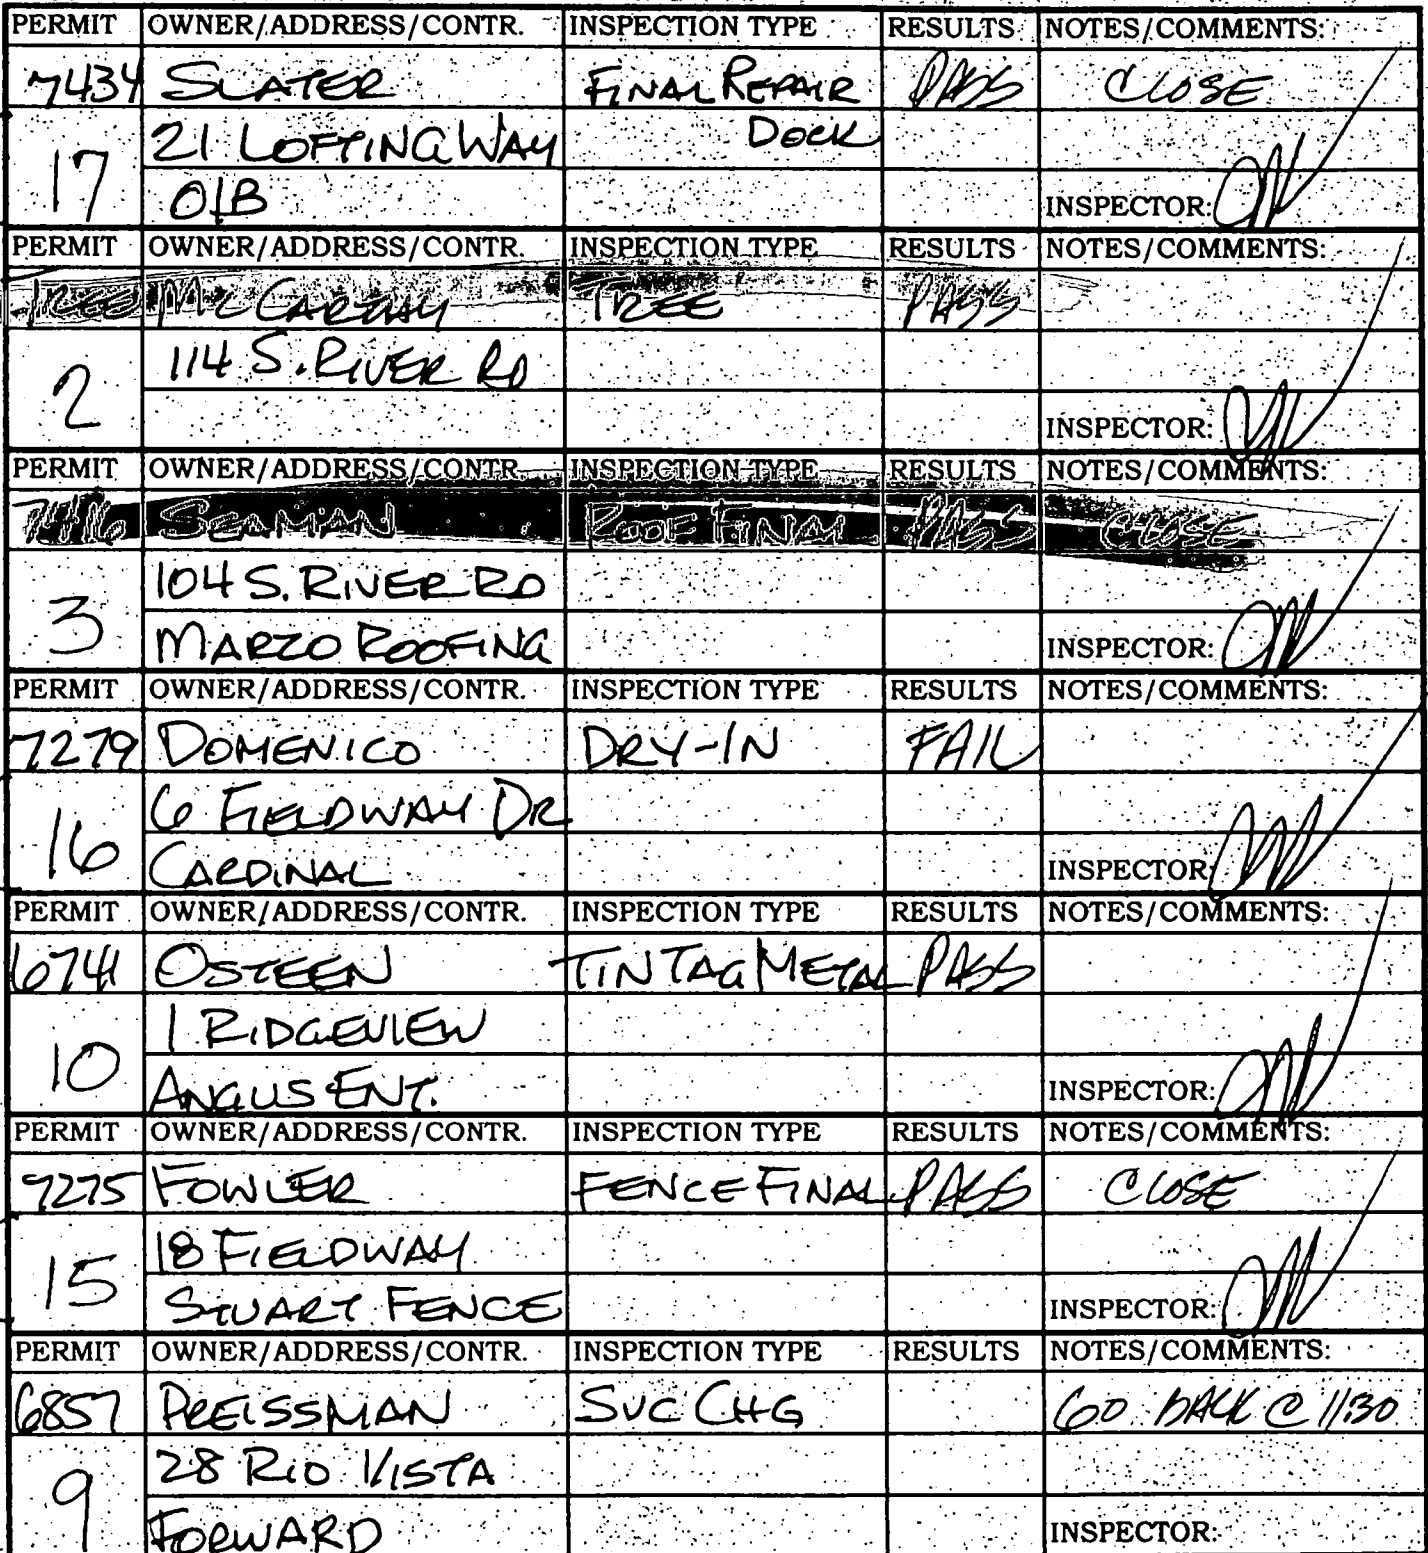 PERMIT OWNER/ADDRESS/CONTR. INSPECTION TYPE RESULTS NOTES/COMMENTS:
7434 SLATER FINAL REPAIR PASS CLOSE
21 LOFTING WAY DOCK
17 O/B INSPECTOR:
PERMIT OWNER/ADDRESS/CONTR. INSPECTION TYPE RESULTS NOTES/COMMENTS:
TREE MCCARTHY TREE PASS
114 S. RIVER RD
2 INSPECTOR:
PERMIT OWNER/ADDRESS/CONTR. INSPECTION TYPE RESULTS NOTES/COMMENTS:
SEAMAN ROOF FINAL PASS CLOSE
104 S. RIVER RD
3 MARZO ROOFING INSPECTOR:
PERMIT OWNER/ADDRESS/CONTR. INSPECTION TYPE RESULTS NOTES/COMMENTS:
7279 DOMENICO DRY-IN FAIL
6 FIELDWAY DR
16 CARDINAL INSPECTOR:
PERMIT OWNER/ADDRESS/CONTR. INSPECTION TYPE RESULTS NOTES/COMMENTS:
6741 OSTEEN TIN TAG METAL PASS
1 RIDGEVIEW
10 ANGUS ENT. INSPECTOR:
PERMIT OWNER/ADDRESS/CONTR. INSPECTION TYPE RESULTS NOTES/COMMENTS:
7275 FOWLER FENCE FINAL PASS CLOSE
18 FIELDWAY
15 STUART FENCE INSPECTOR:
PERMIT OWNER/ADDRESS/CONTR. INSPECTION TYPE RESULTS NOTES/COMMENTS:
6857 PREISSMAN SVC CHG GO BACK @ 11:30
28 RIO VISTA
9 FORWARD INSPECTOR: